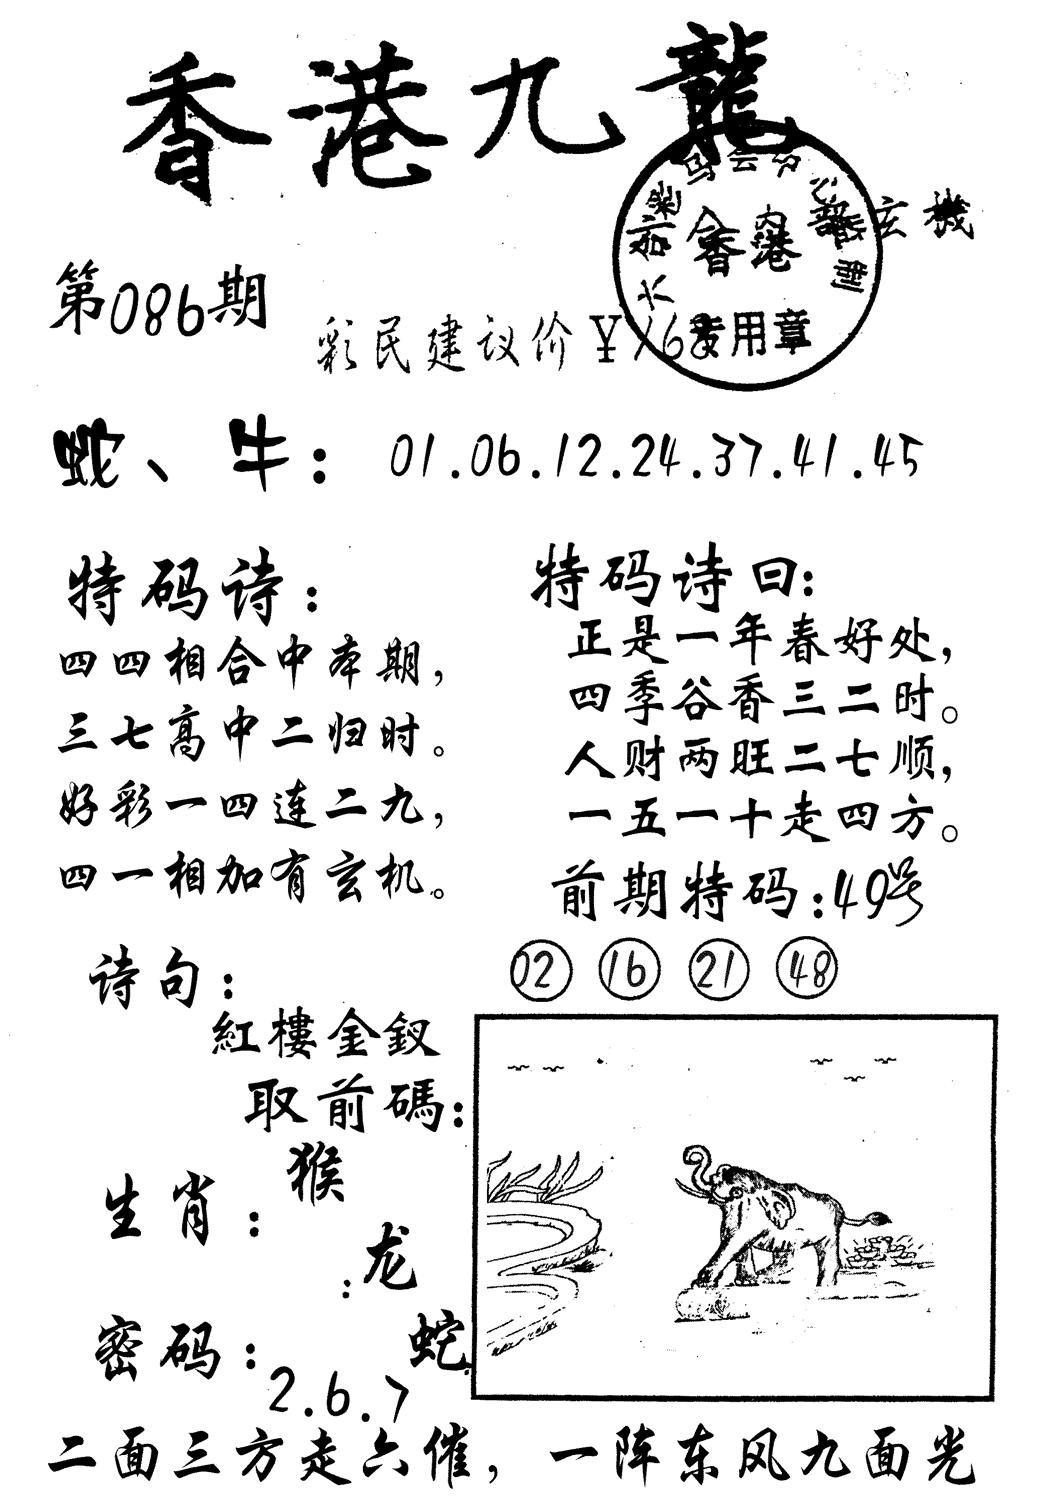 香港九龍
六和彩马会中心
香港
内部玄機
专用章
第086期
彩民建议价¥168
蛇、牛：01.06.12.24.37.41.45
特码诗：
四四相合中本期，
三七高中二归时。
好彩一四连二九，
四一相加有玄机。
特码诗曰：
正是一年春好处，
四季谷香三二时。
人财两旺二七顺，
一五一十走四方。
前期特码：49号
02 16 21 48
诗句：
紅樓金釵
取前碼：
生肖：
猴
：龙
蛇
密码：
2.6.7
二面三方走六催，一阵东风九面光